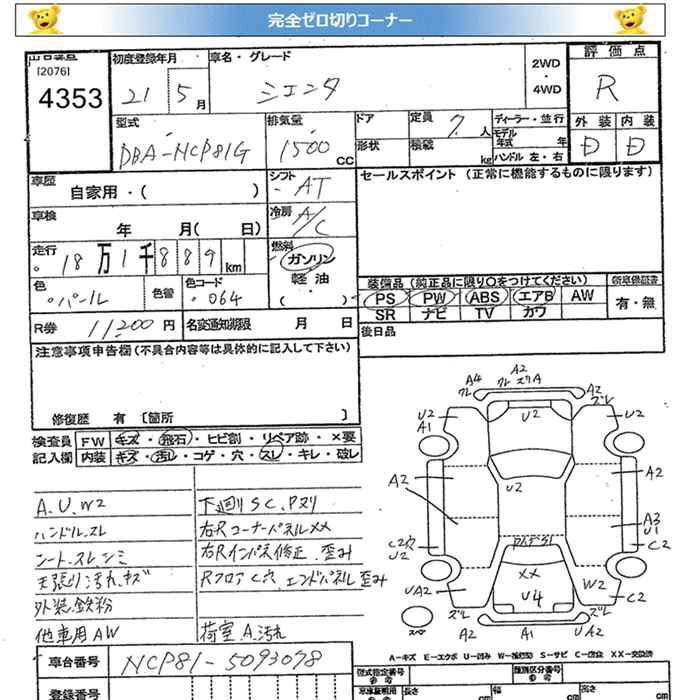 完全ゼロ切りコーナー
[2076]
4353
初度登録年月 21 5 月
車名・グレード シエンタ
2WD・4WD
評価点 R
型式 DBA-NCP81G
排気量 1500 CC
ドア 形状
定員 7 人
積載 kg
ディーラー・並行
モデル年式 年
ハンドル 左・右
外装 D 内装 D
車歴 自家用・( )
シフト AT
セールスポイント (正常に機能するものに限ります)
車検 年 月( 日)
冷房 A/C
走行 18万1千889 km
燃料 ガソリン 軽油 ( )
色 パール 色替 色コード 064
装備品(純正品に限り○をつけてください)
PS PW ABS エアB AW
SR ナビ TV カワ
新車保証書 有・無
R券 11,200 円 名変通知期限 月 日
後日品
注意事項申告欄(不具合内容等は具体的に記入して下さい)
修復歴 有 [箇所 ]
検査員 FW キズ・飛石・ヒビ割・リペア跡・×要
記入欄 内装 キズ・汚レ・コゲ・穴・スレ・キレ・破レ
A.U.W2
ハンドルスレ
シートスレシミ
天張り汚れ.キズ
外装鉄粉
他車用AW
下廻りSC.Pヌリ
右Rコーナーパネル××
右Rインパネ修正.歪み
RフロアC穴 エンドパネル歪み
荷室A.汚れ
A2
A4 クレ スリA
A2
ズレ
U2 U2 U2
A1
U2
A2 A2
A3
U1
C2穴
U2
C2
××
W2
UA2 U4 C2
ズレ ズレ
スペア A2 A1 UA2
A-キズ E-エクボ U-凹み W-補修跡 S-サビ C-腐食 XX-交換済
車台番号 NCP81-5093078
型式指定番号 参考
類別区分番号 参考
登録番号
車庫証明用 参考 長さ cm 幅 cm 高さ cm